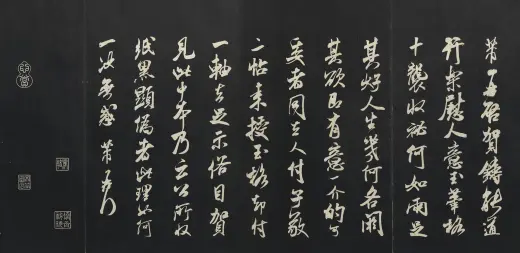 芾再啓賀鑄能道
行樂慰人意玉筆格
十襲收祕何如兩足
其好人生幾何各閼
其欲即有意一介的可
委者同去人付子敬
二帖未授玉格却付
一軸去足示俗目賀
見此中本乃云公所收
紙黑顯偽者此理如何
一決無惑芾再拜